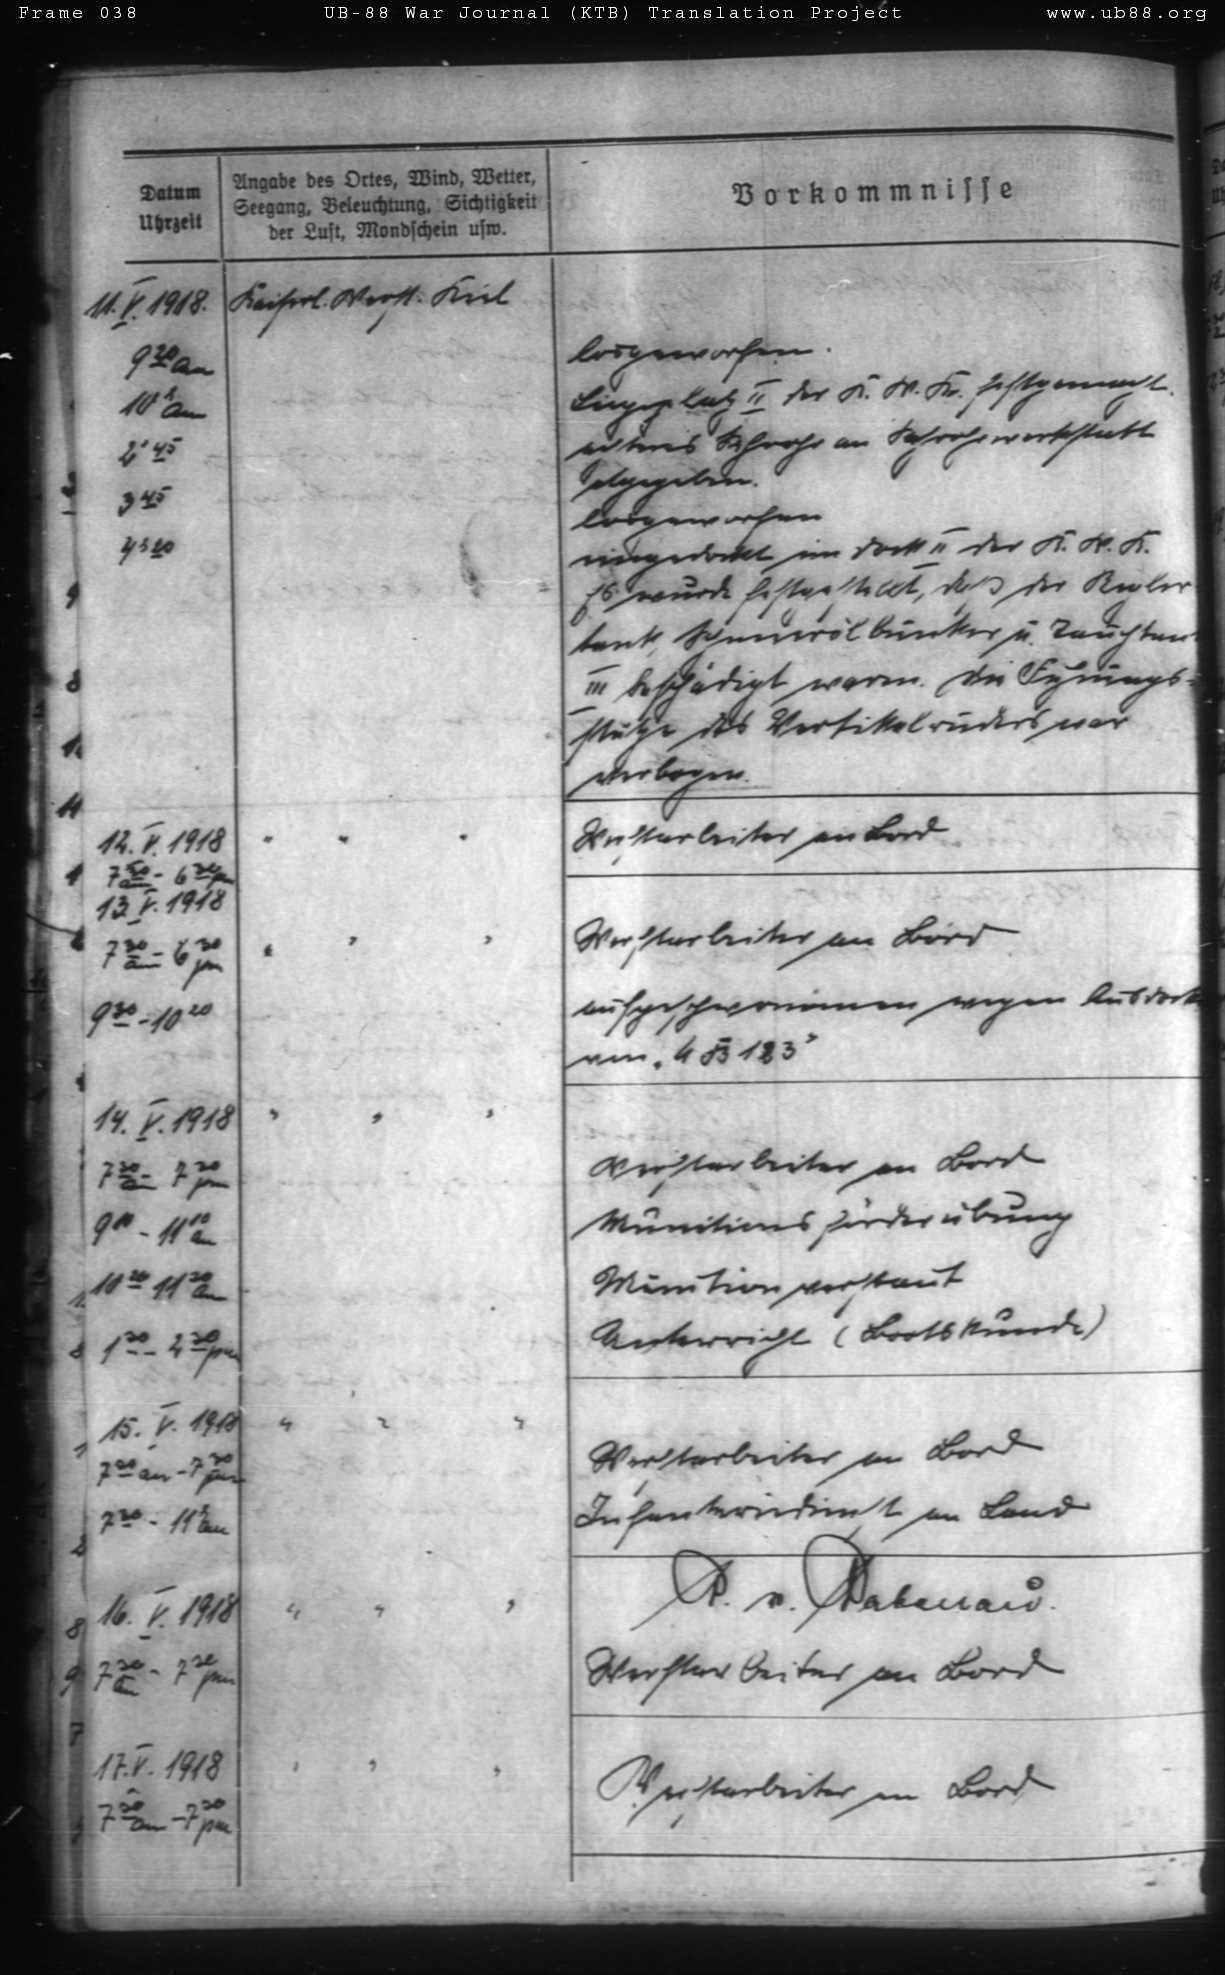 Frame 038 UB-88 War Journal (KTB) Translation Project www.ub88.org
Datum
Uhrzeit
Angabe des Ortes, Wind, Wetter,
Seegang, Beleuchtung, Sichtigkeit
der Luft, Mondschein usw.
Vorkommnisse
11. V. 1918. Kaiserl. Werft. Kiel
9 20 am losgeworfen.
10 h am Liegeplatz II der K. W. K. festgemacht.
2 45 achteres Sehrohr an Sehrohrwerkstatt
abgegeben.
3 45 losgeworfen
eingedockt im Dock II der K. W. K.
Es wurde festgestellt, daß der Regler
tank, Schmierölbunker u. Tauchtank
III beschädigt waren. Die Führungs-
stütze des Vertikalruders war
verbogen.
12. V. 1918 " " " Werftarbeiter an Bord
7 30 am - 6 30 pm
13. V. 1918
7 30 am - 6 30 pm " " " Werftarbeiter an Bord
9 30 - 10 20 aufgeschwommen wegen Ausdock
von "UB 123"
14. V. 1918 " " "
7 30 am - 7 30 pm Werftarbeiter an Bord
9 10 - 11 10 am Munitionsförderübung
10 20 11 30 am Munition verstaut
1 30 - 2 30 pm Unterricht (Bootskunde)
15. V. 1918 " " "
7 30 am - 7 30 pm Werftarbeiter an Bord
7 30 - 11 h am Infanteriedienst an Land
R. v. Rabenau.
16. V. 1918 " " "
7 30 am - 7 30 pm Werftarbeiter an Bord
17. V. 1918 " " "
7 30 am - 7 30 pm Werftarbeiter an Bord